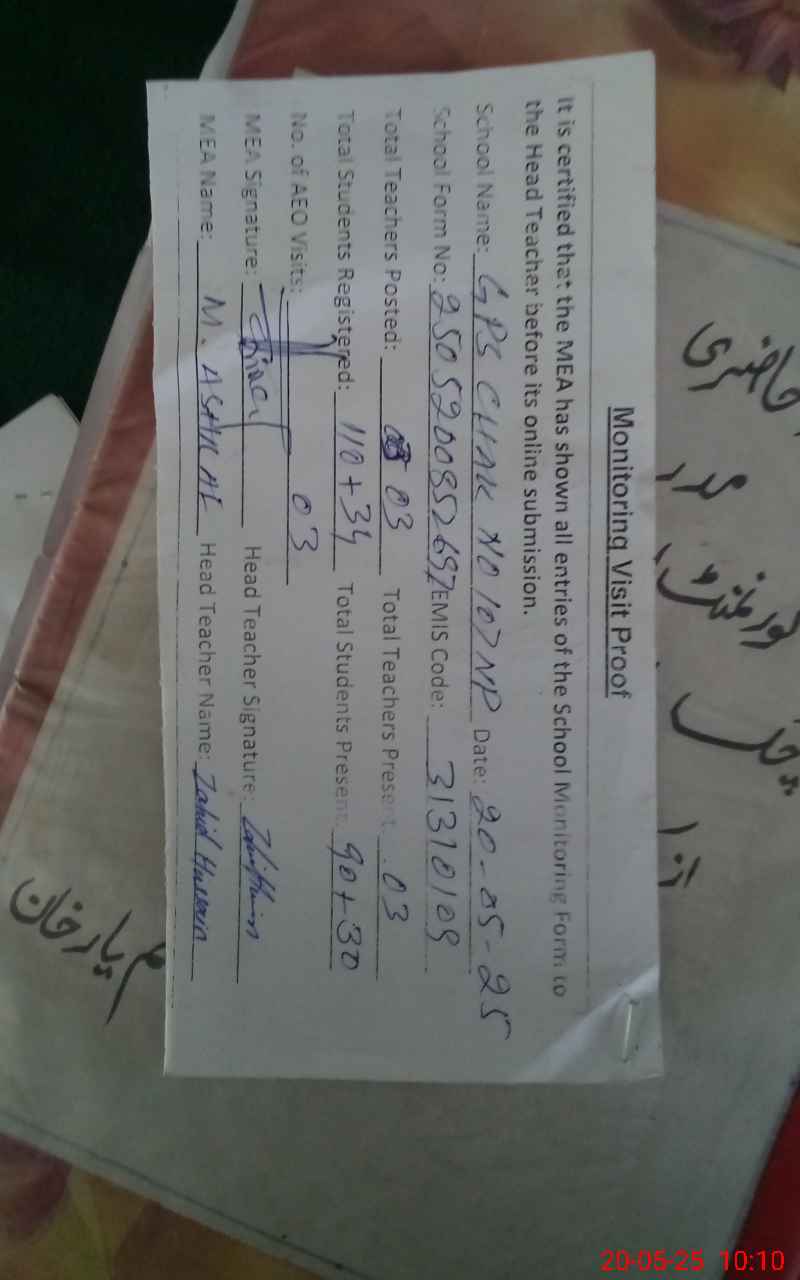 Monitoring Visit Proof
It is certified that the MEA has shown all entries of the School Monitoring Form to
the Head Teacher before its online submission.
School Name: GPS CHAK NO 107 NP Date: 20-05-25
School Form No: EMIS Code: 31310109
Total Teachers Posted: 03 Total Teachers Present: 03
Total Students Registered: 110+34 Total Students Present: 90+30
No. of AEO Visits: 03
MEA Signature: Head Teacher Signature:
MEA Name: M. Head Teacher Name: Zahid Hussain
حاضری
گورنمنٹ
چک
یار خان
20-05-25 10:10